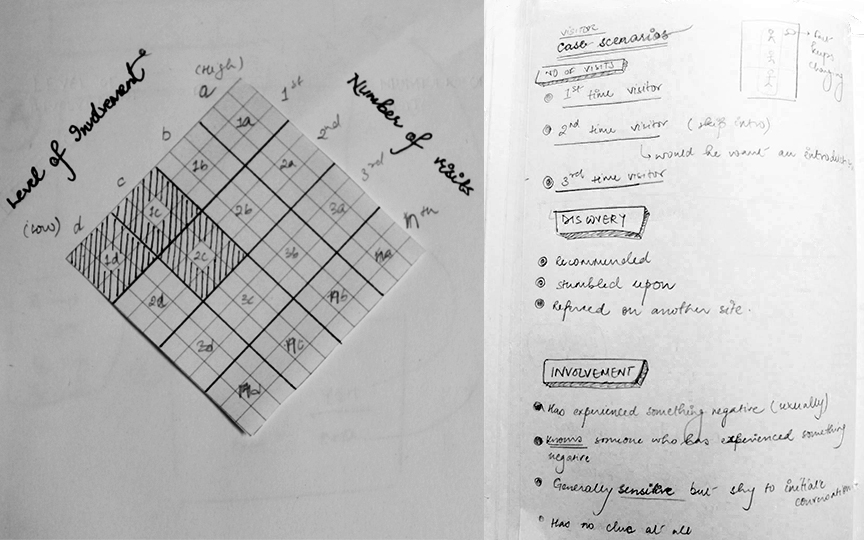 Level of Involvement
(High)
a
b
c
d
(Low)
1st
2nd
3rd
nth
Number of visits
1a
1b
2a
1c
2b
3a
1d
2c
3b
na
2d
3c
nb
3d
nc
nd
VISITOR
case scenarios
NO OF VISITS
1st time visitor
2nd time visitor (skip intro)
would he want an introduction
3rd time visitor
keeps
changing
DISCOVERY
recommended
stumbled upon
Refered on another site.
INVOLVEMENT
Has experienced something negative (sexually)
Knows someone who has experienced something
negative
Generally sensitive but shy to initiate
conversation
Has no clue at all